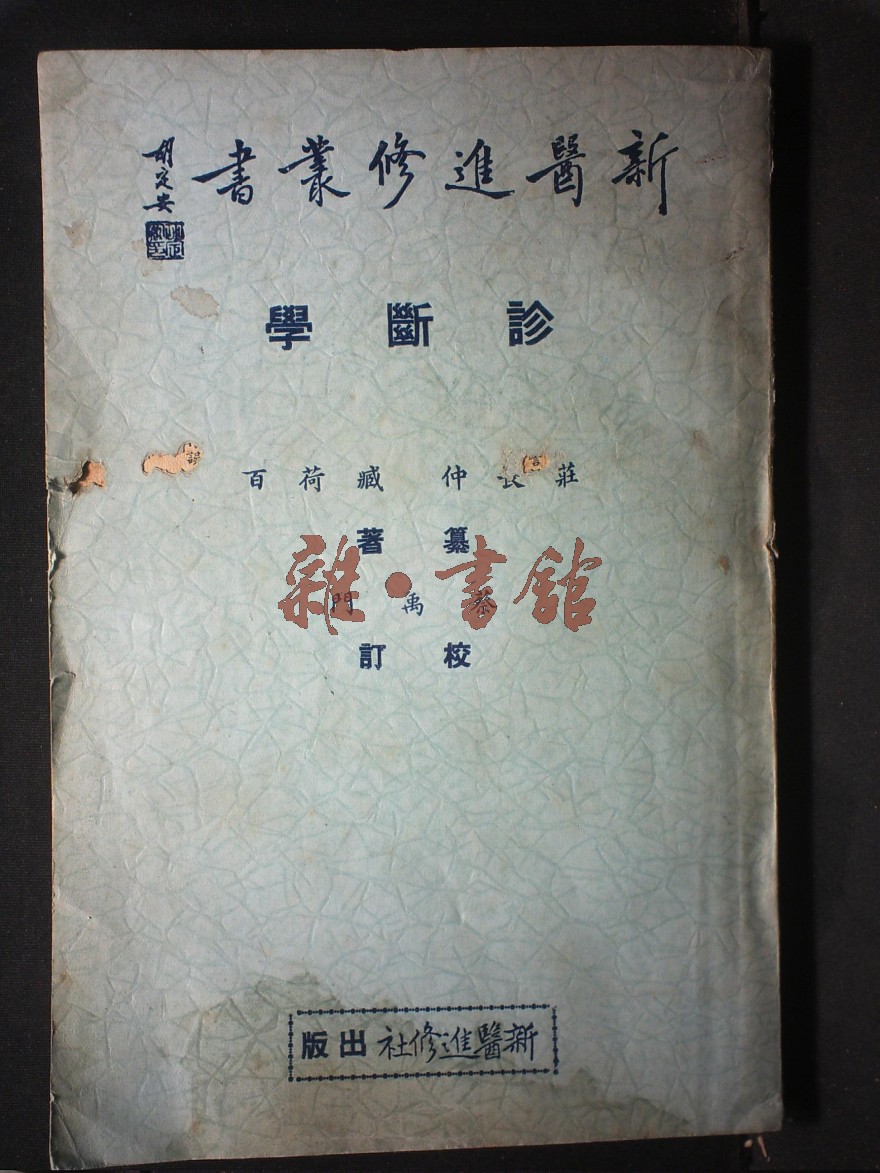 新醫進修叢書
胡定安
診斷學
莊 仲 臧荷百
纂著
蔡禹門
雜·書館
校訂
新醫進修社出版